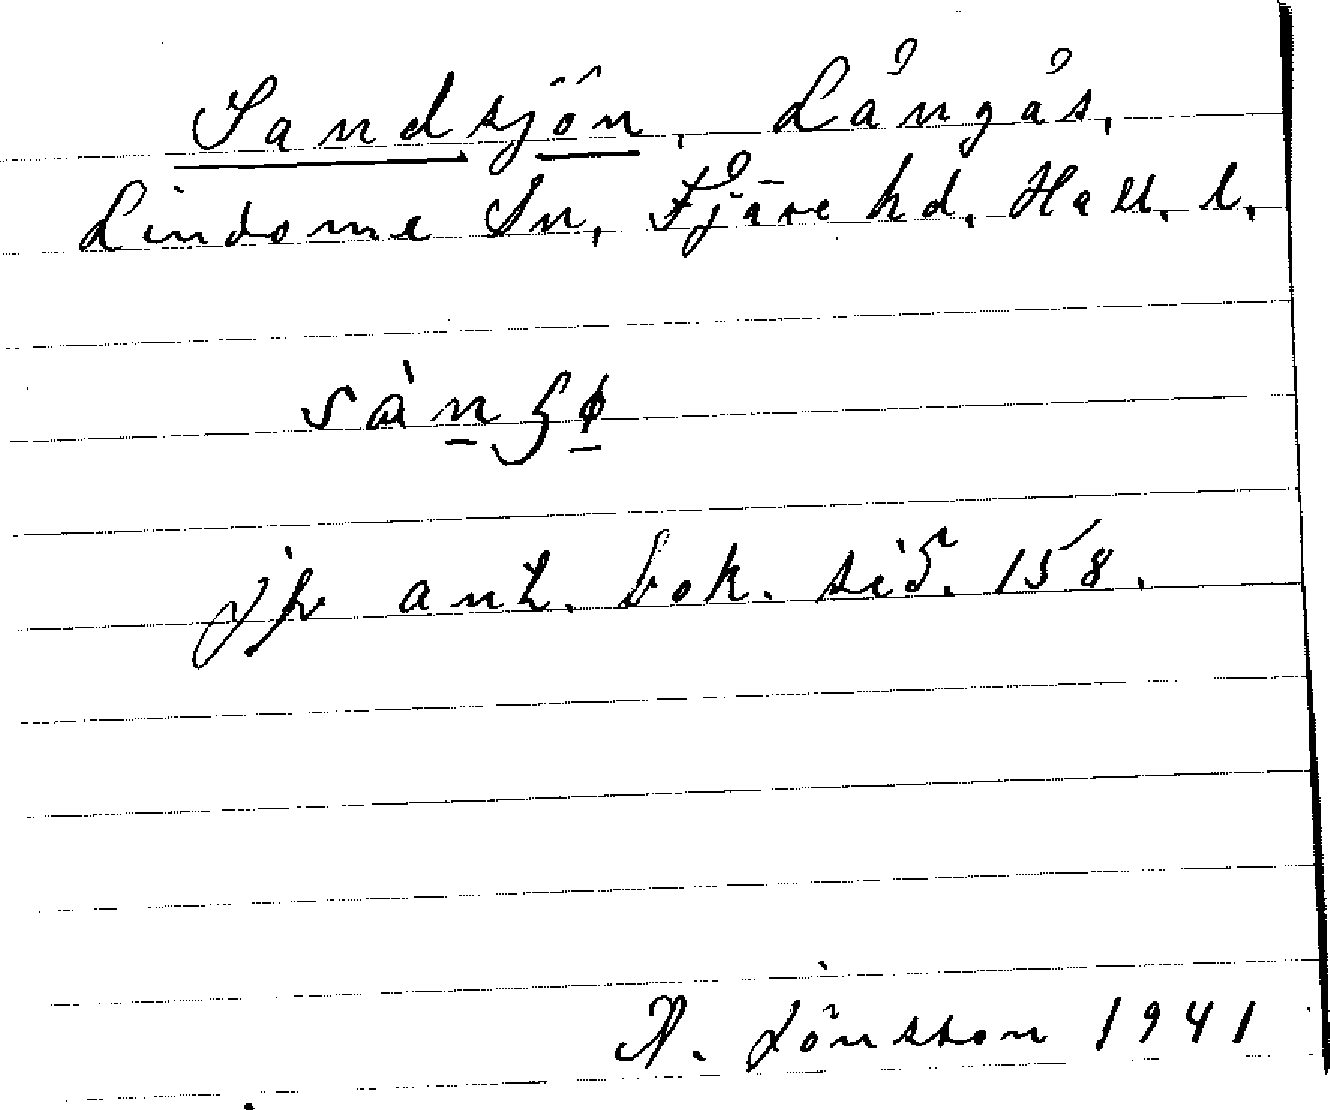 Sandsjön, Långås,
Lindome Sn, Fjäre hd. Hall. l.
jfr ant. bok. sid. 158.
A. Jönsson 1941